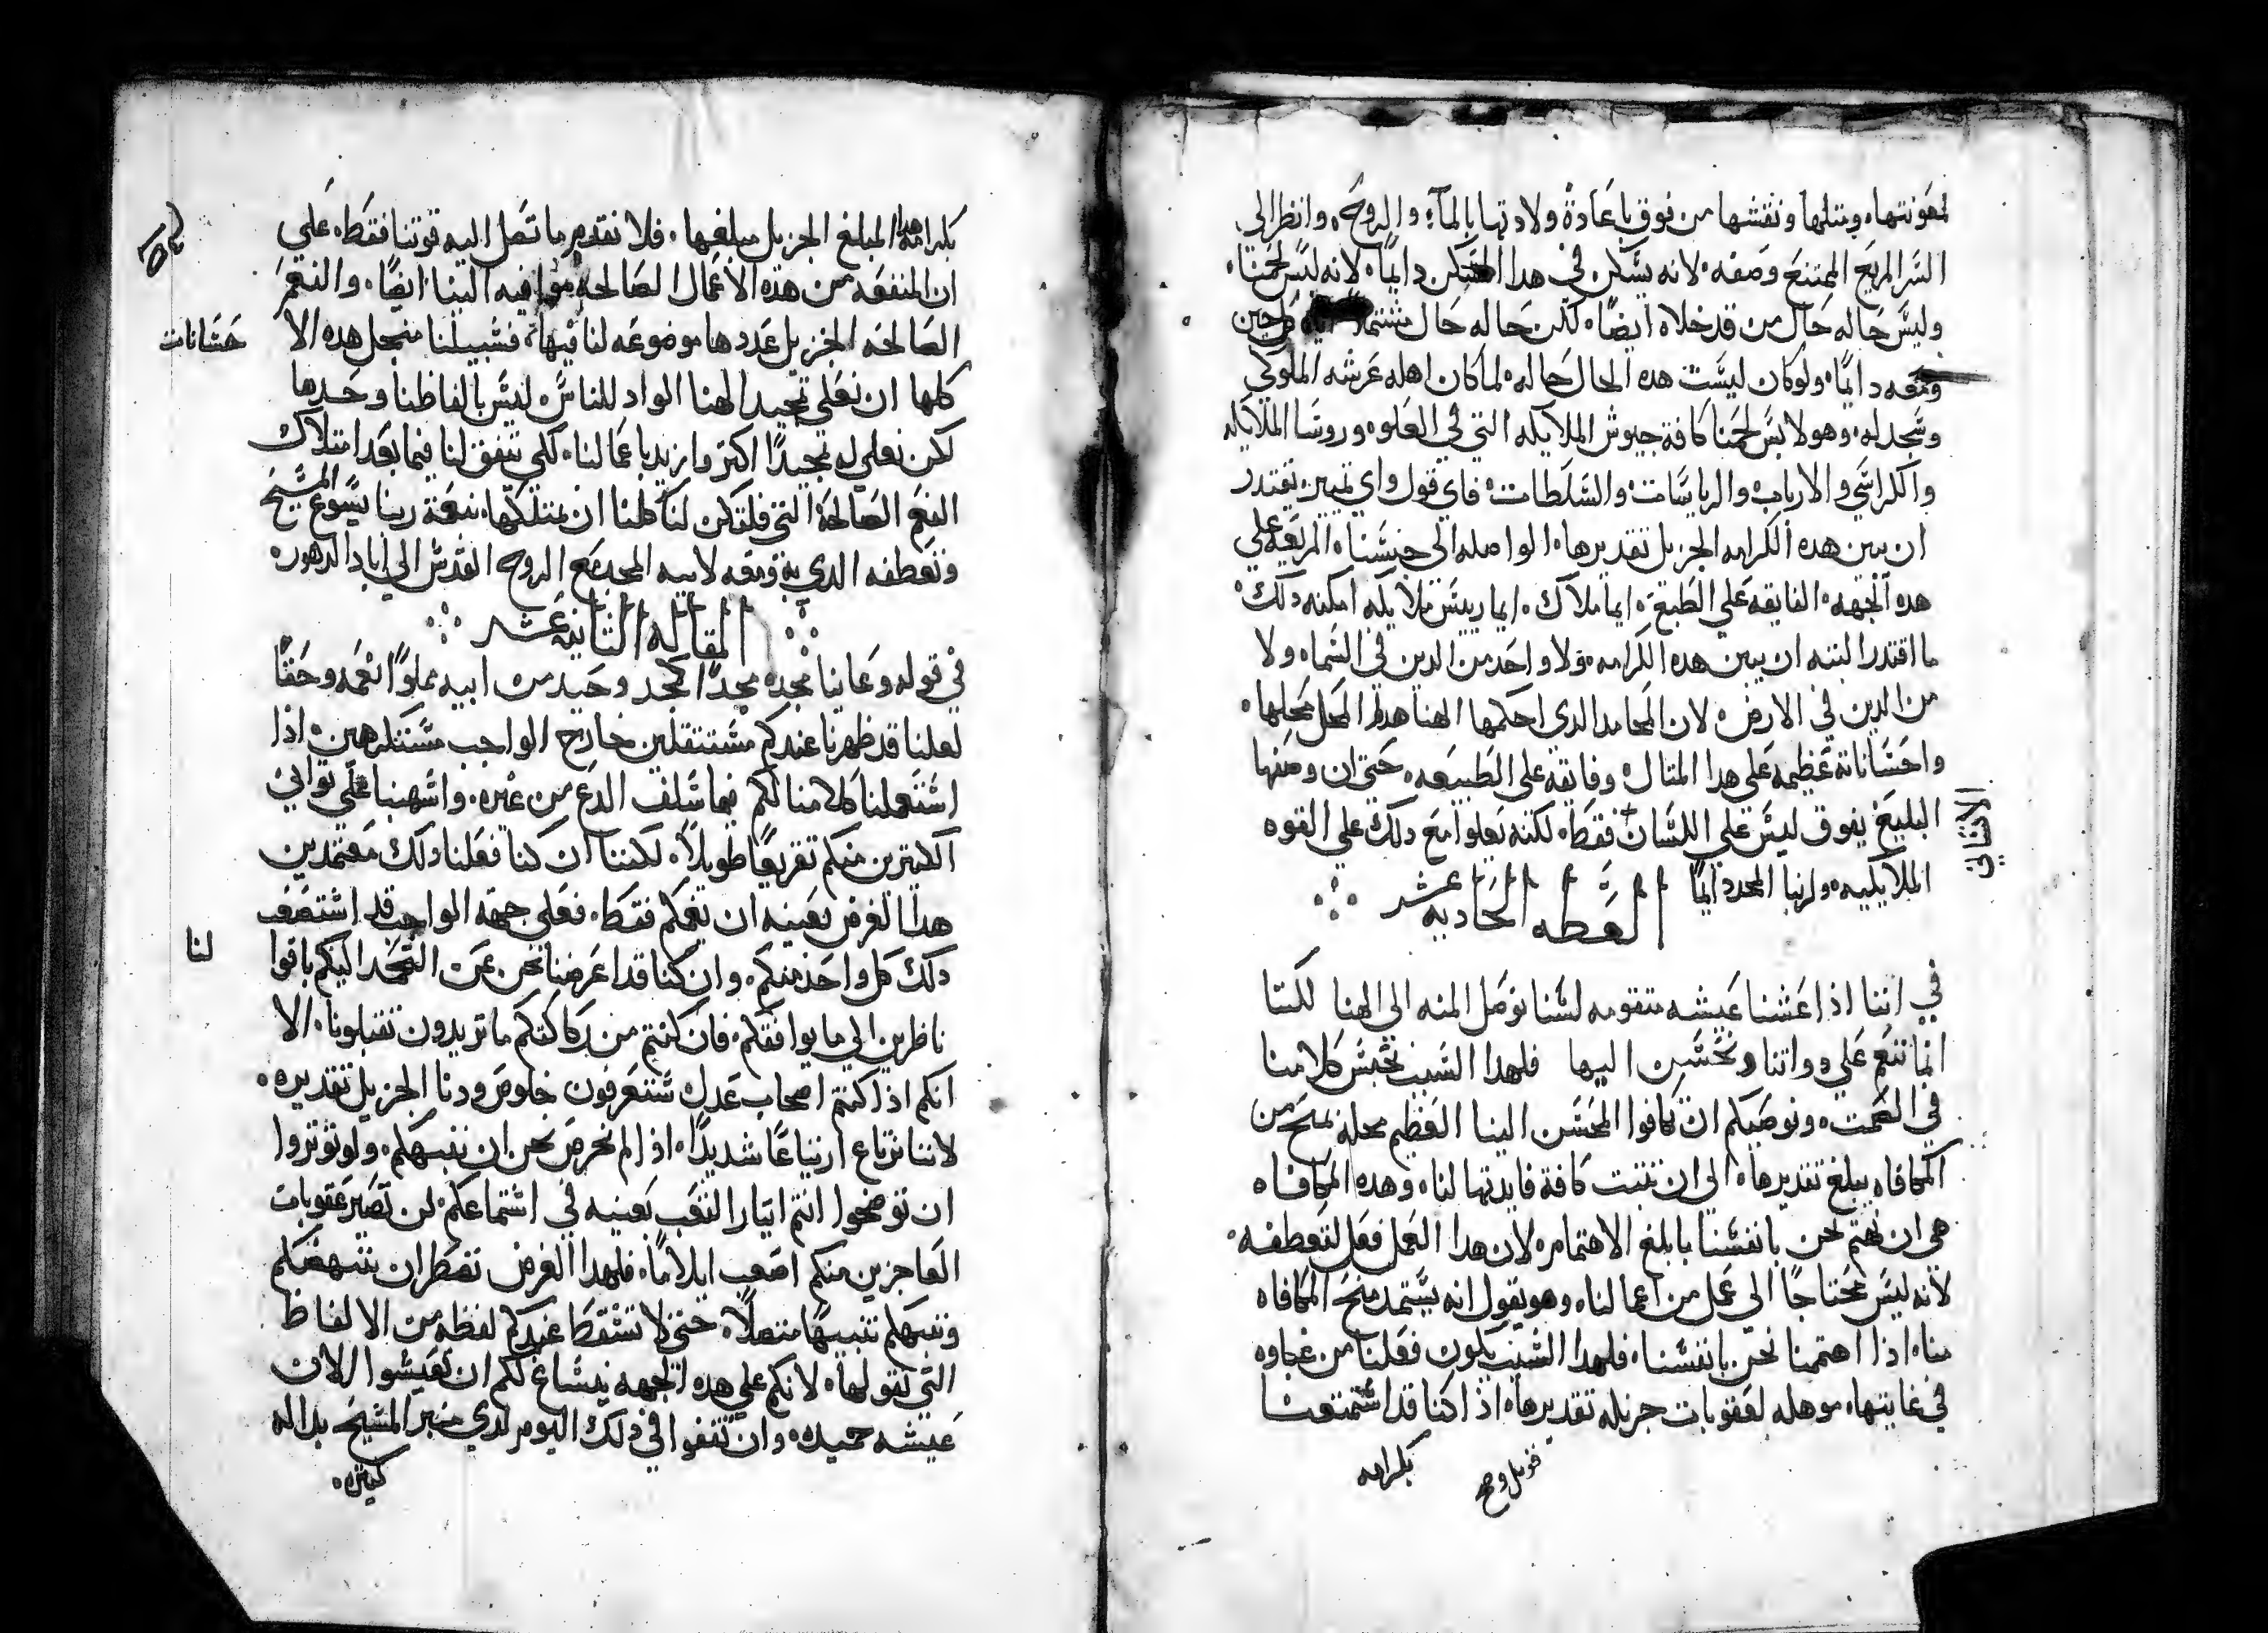 لمعونتها، ويتلها ونقشها من فوق باعادة ولادتها بالمآء والروح، وانظر الى
السر المريع الممتنع وصفه، لانه يسكن في هدا المسكن دايمًا، لانه ليس لحمنا،
وليس حاله حال من قد خلاه ايضًا، لكن حاله حال مشتملا اياه
ومعه دايمًا، ولو كان ليست هده الحال حاله، لما كان اهله عرشه الملوكي
وسجد له، وهو لابس لحمنا كافة جيوش الملايكه التي في العلو، وروسا الملايكه
والكراسي والارباب، والرياسات، والسلطات، فاي قول واي تمييز يقتدر
ان يبين هده الكرامه الجزيل تقديرها، الواصله الى جنسنا، المريعه على
هده الجهه، الفايقه على الطبع، ايما ملاك، ايما رييس ملايكه امكنه دلك،
ما اقتدر البته ان يبين هده الكرامه، ولا واحد من الدين في السماء، ولا
من الدين في الارض، لان المحامد الدى احكمها الهنا هدا المحل محلها،
واحساناته عظيمه على هدا المتال، وفايقه على الطبيعه، حتى ان وصفها
البليغ يفوق ليس على اللسان فقط، لكنه يعلوا مع دلك على القوه
الملايكليه، ولربنا المجد دايمًا
الانساني
العظه الحاديه عشر
في اننا اذا عشنا عيشه متقومه لسنا نوصل المنه الى الهنا لكننا
انما ننعم على دواتنا ونحسن اليها فلهدا السبب نحبس كلامنا
في الصمت، ونوصيكم ان تكافوا المحسن الينا العظيم محله بمنح من
المكافاه يبلغ تقديرها، الى ان تتبت كافة فايدتها لنا، وهده المكافاه
هي ان نهتم نحن بانفسنا بابلغ الاهتمام، لان هدا العمل فعل لتعطفه،
لانه ليس محتاجًا الى عمل من اعمالنا، وهو يقول انه يستمد منح المكافاه
منا، اذا اهتممنا نحن بانفسنا، فلهدا السبب يكون فعلنا من غباوه
في غايتها، موهله لعقوبات جزيله تقديرها، اذ كنا قد استمتعنا
بكرامه
بكرامه هدا المبلغ الجزيل مبلغها، فلا نقدم ما تصل اليه قوتنا فقط، على
ان المنفعه من هده الاعمال الصالحه موافيه الينا ايضًا، والنعم
الصالحه الجزيل عددها موضوعه لنا فيها، فسبيلنا منجل هده الا
حسانات
كلها ان نعلي تمجيد الهنا الواد للناس، ليس بالفاظنا وحدها
لكن نعلي له تمجيدًا اكتر وازيد باعمالنا، لكي يتفق لنا فيما بعد امتلاك
النعم الصالحة التي فلتكن لنا كلنا ان نمتلكها، بنعمة ربنا يسوع المسيح
وتعطفه الدي به ومعه لابيه المجد مع الروح القدس الى اباد الدهور،
المقاله الثانيه عشر
في قوله وعاينا مجده مجدًا كمجد وحيد من ابيه مملوًا نعمه وحقًا
لعلنا قد ظهرنا عندكم مستثقلين خارج الواجب مستكرهين، اذا
استعملنا كلامنا لكم فيما سلف الدع من غيره، واسهبنا على تواني
الكتيرين منكم تقريعًا طويلاً، لكننا ان كنا فعلنا دلك معتمدين
هدا الغرض بعينه ان يغمكم فقط، فعلى جهة الواجب قد استصعف
دلك كل واحد منكم، وان كنا قد اعرضنا نحن عن التمجد اليكم باقوا
لنا
ناظرين الى ما يوافقكم، فان كنتم من ركاكتكم ما تريدون تقبلونا، الا
انكم اذا كنتم اصحاب عدل ستعرفون خلوص ودنا الجزيل تقديره،
لاننا نرتاع ارتياعًا شديدًا، اذ لم نحرص نحن ان ننبهكم، ولو توتروا
ان توضحوا انتم ايتار التعب بعينه في استماعكم، لن تصير عقوبات
العاجزين منكم اصعب ايلامًا، فلهدا الغرض نضطر ان ننهضكم
وننبهكم تنبيهًا متصلاً، حتى لا تسقط عندكم لفظه من الالفاظ
التي نقولها، لانكم على هده الجهه ينساغ لكم ان تعيشوا الان
عيشه حميده، وان تقفوا في دلك اليوم لدي منبر المسيح بداله
كبيره،